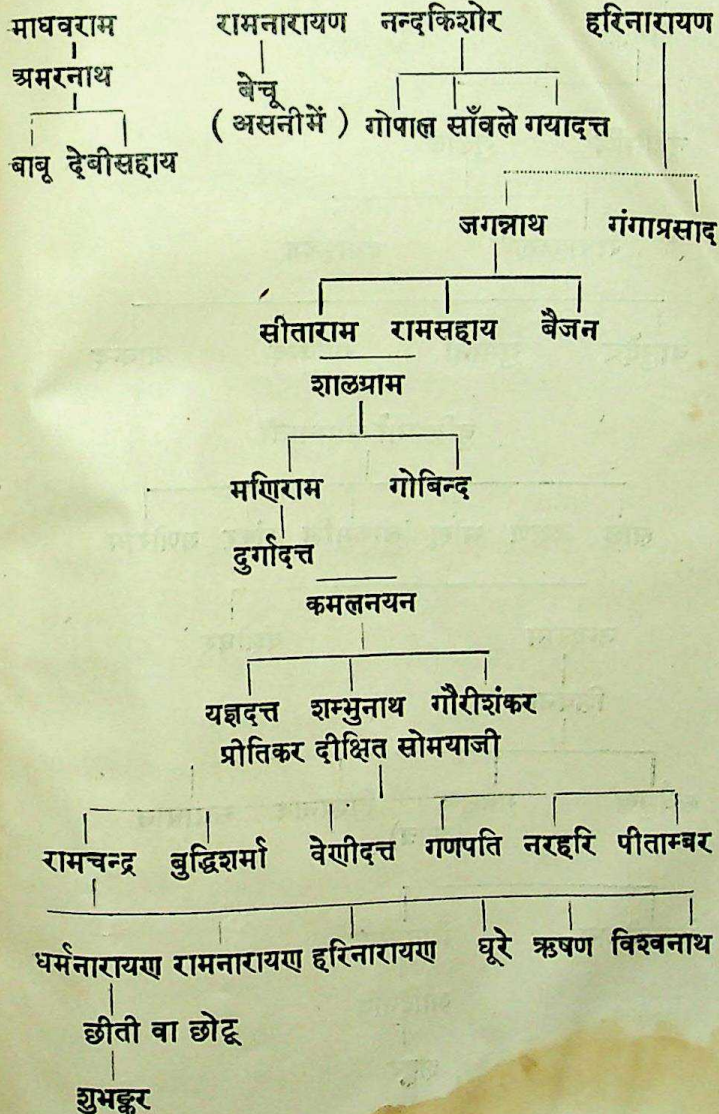 माधवराम रामनारायण नन्दकिशोर हरिनारायण
अमरनाथ बेचू
( असनीमें ) गोपाल साँवले गयादत्त
बाबू देवीसहाय
जगन्नाथ गंगाप्रसाद
सीताराम रामसहाय बैजन
शालग्राम
मणिराम गोबिन्द
दुर्गादत्त
कमलनयन
यज्ञदत्त शम्भुनाथ गौरीशंकर
प्रीतिकर दीक्षित सोमयाजी
रामचन्द्र बुद्धिशर्मा वेणीदत्त गणपति नरहरि पीताम्बर
धर्मनारायण रामनारायण हरिनारायण घूरे ऋषण विश्वनाथ
छीती वा छोटू
शुभङ्कर